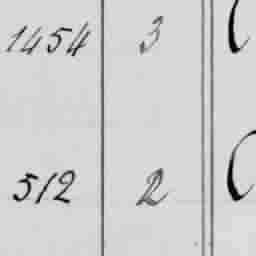 1454 3
512 2